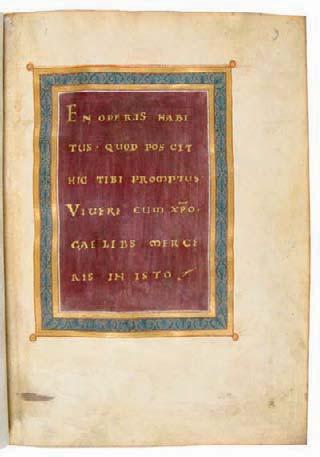 EN OPERIS HABI
TUS · QUOD POSCIT
HIC TIBI PROMPTUS
VIVERE CUM XPO ·
CAELIBS MERCE
RIS IN ISTO